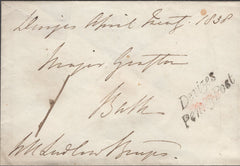 Devizes April 1838
Major Grafton
Bath
Devizes
Penny Post
Wm Ludlow Bruges